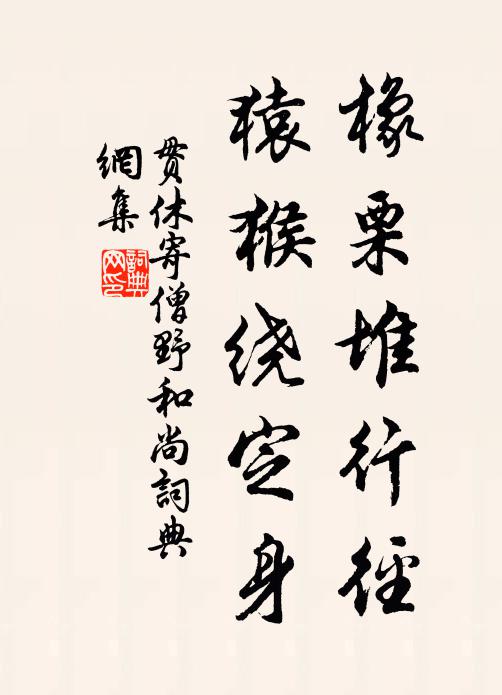 橡栗堆行徑
猿猴绕定身
貫休寄僧野和尚詞典
網集
詞典网印